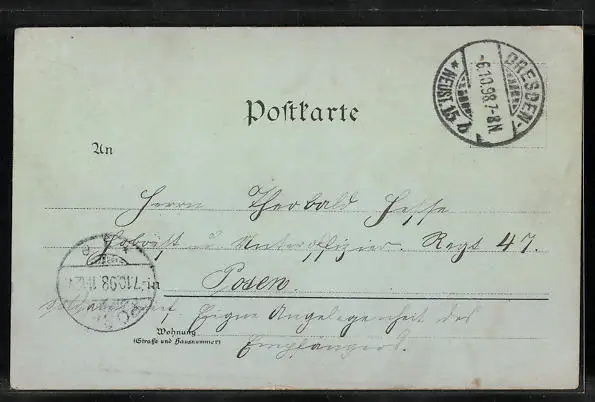 DRESDEN-
-6.10.98.7-8N.
* NEUST. 15 b
Postkarte
An
Herrn Theobald Hesse
Hoboist u. Unteroffizier. Regt 47.
Posen.
Soldatenbrief. Eigne Angelegenheit des
Empfängers.
Wohnung
(Straße und Hausnummer)
7.10.98.